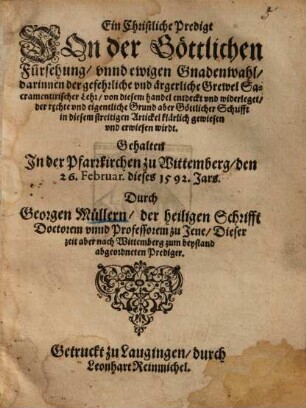 Ein Christliche Predigt
Von der Göttlichen
Fürsehung/ vnnd ewigen Gnadenwahl/
darinnen der gefehrliche vnd ärgerliche Grewel Sa-
cramentirischer Lehr/ von diesem handel entdeckt vnd widerleget/
der rechte vnd eigentliche Grund aber Göttlicher Schrifft
in diesem streitigen Artickel klärlich gewiesen
vnd erwiesen wirdt.
Gehalten
In der Pfarrkirchen zu Wittemberg/ den
26. Februar. dieses 1592. Jars.
Durch
Georgen Müllern/ der heiligen Schrifft
Doctorem vnnd Professorem zu Jene/ Dieser
zeit aber nach Wittemberg zum beystand
abgeordneten Prediger.
Getruckt zu Laugingen/ durch
Leonhart Reinmichel.